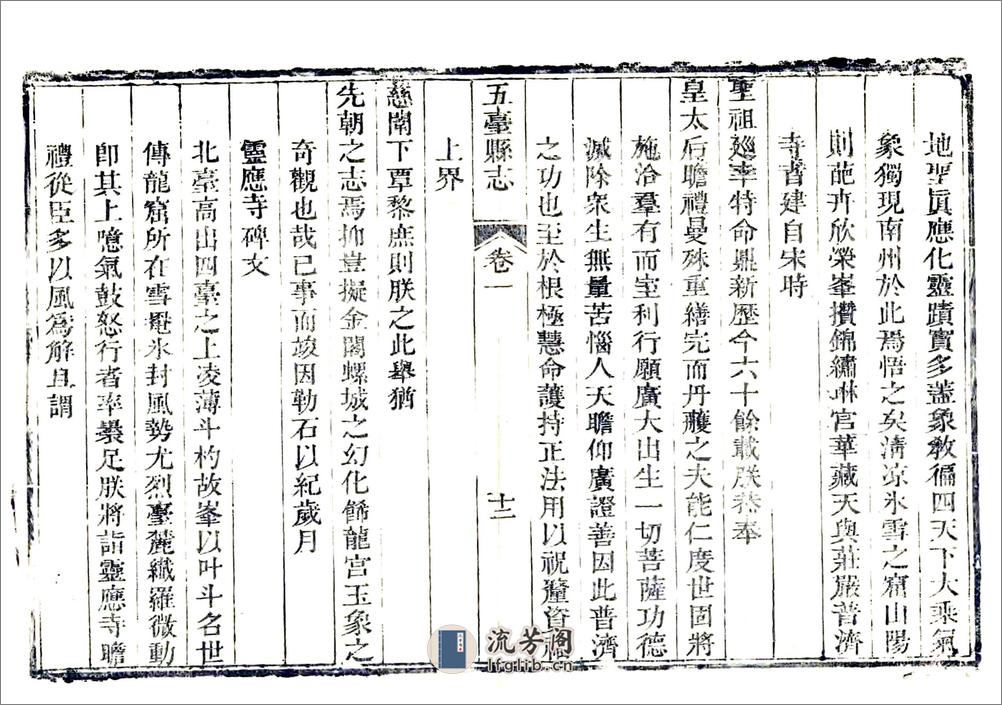 地聖眞應化靈蹟實多蓋象敎徧四天下大乘氣
象獨現南州於此焉悟之矣淸涼氷雪之窟山陽
則葩卉欣榮峯攢錦繡琳宮華藏天與莊嚴普濟
寺昔建自宋時
聖祖廵幸特命鼎新歷今六十餘載朕恭奉
皇太后瞻禮曼殊重繕完而丹雘之夫能仁度世固將
施洽羣有而室利行願廣大出生一切菩薩功德
滅除衆生無量苦惱人天瞻仰廣證善因此普濟
之功也至於根極慧命護持正法用以祝釐資福
五臺縣志
卷一
十二
上界
慈闈下覃黎庶則朕之此舉猶
先朝之志焉抑豈擬金閣螺城之幻化飾龍宮玉象之
奇觀也哉已事而竣因勒石以紀歲月
靈應寺碑文
北臺高出四臺之上凌薄斗杓故峯以叶斗名世
傳龍窟所在雪電氷封風勢尤烈壑麓纖羅微動
卽其上噫氣鼓怒行者率褁足朕將詣靈應寺瞻
禮從臣多以風爲解且謂
流芳阁
lfglib.cn